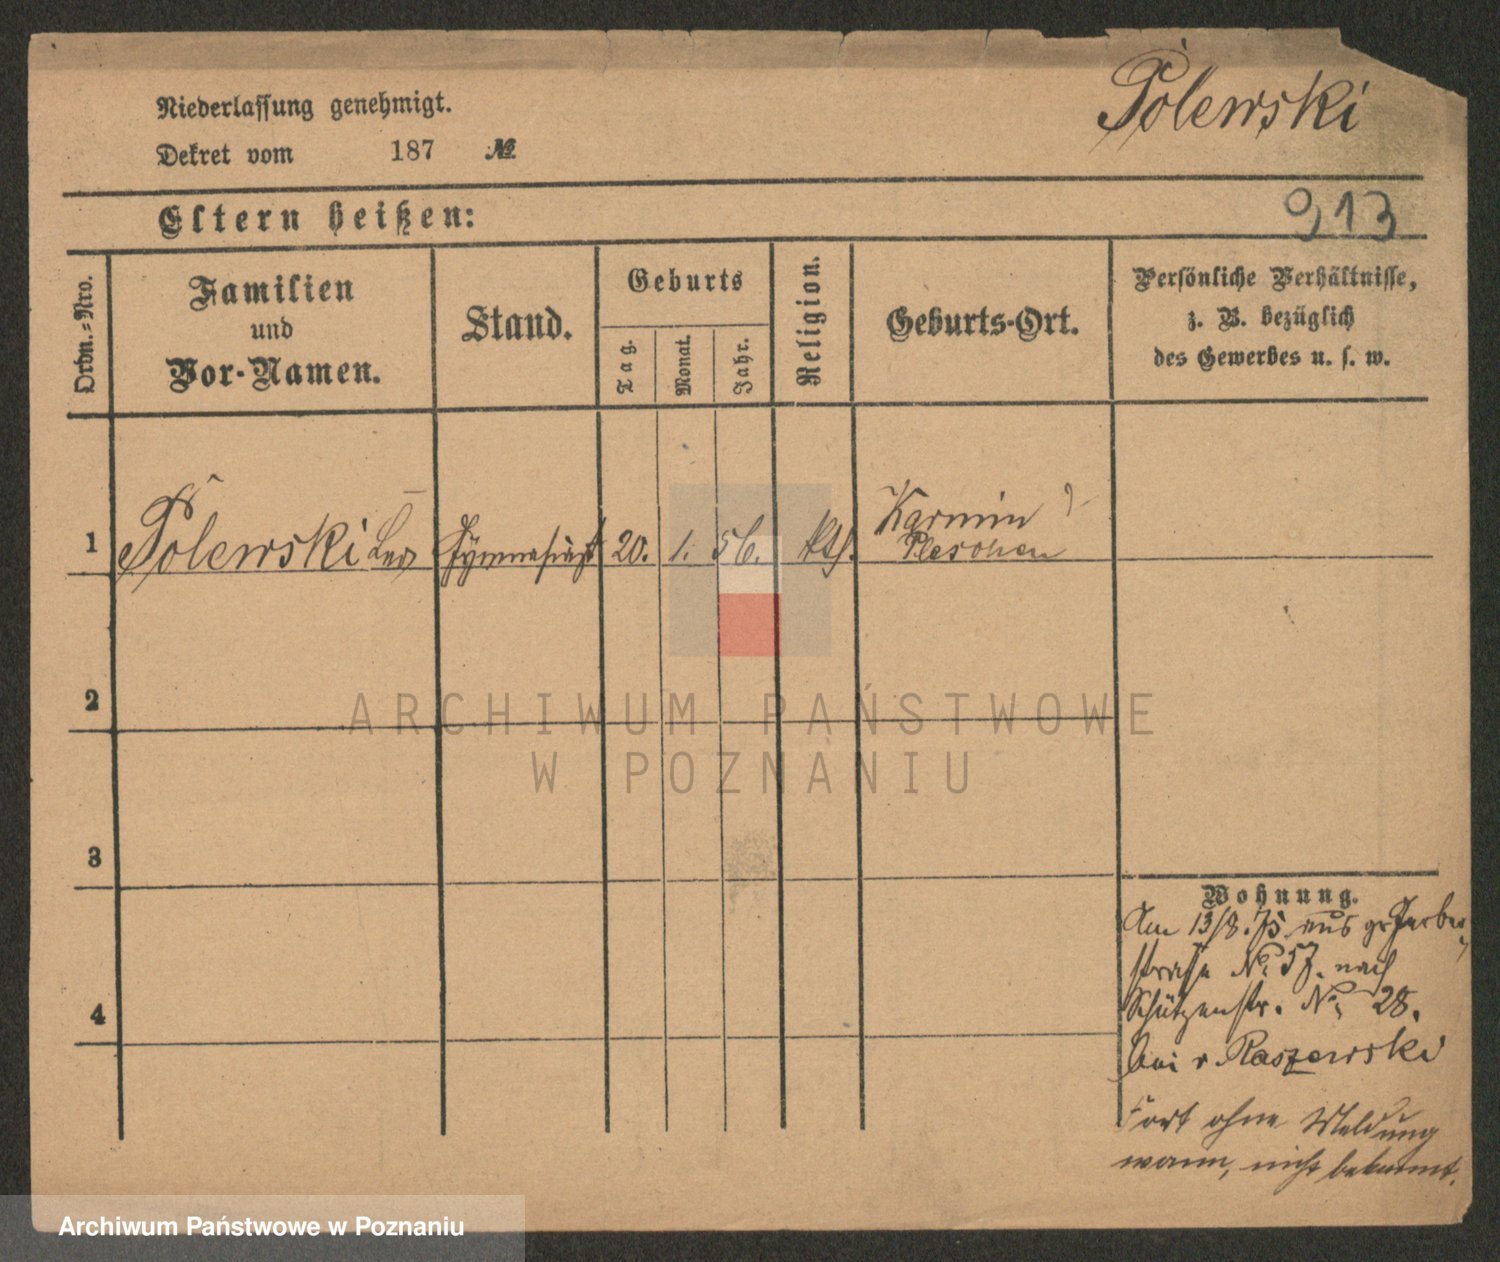 Polewski
Niederlassung genehmigt.
Dekret vom 187 №
Eltern heißen:
913
Ordn.=Nro.
Familien
und
Vor-Namen.
Stand.
Geburts
Tag.
Monat.
Jahr.
Religion.
Geburts-Ort.
Persönliche Verhältnisse,
z. B. bezüglich
des Gewerbes u. s. w.
1 Polewski Leo Gymnasiast 20. 1. 56. kth. Karmin
Pleschen
2
3
4
Wohnung.
Am 13/8. 75 aus gr Gerber
straße No 57. nach
Schützenstr. No 28.
bei v Raszewski
Fort ohne Meldung
wann, nicht bekannt.
ARCHIWUM PAŃSTWOWE
W POZNANIU
Archiwum Państwowe w Poznaniu